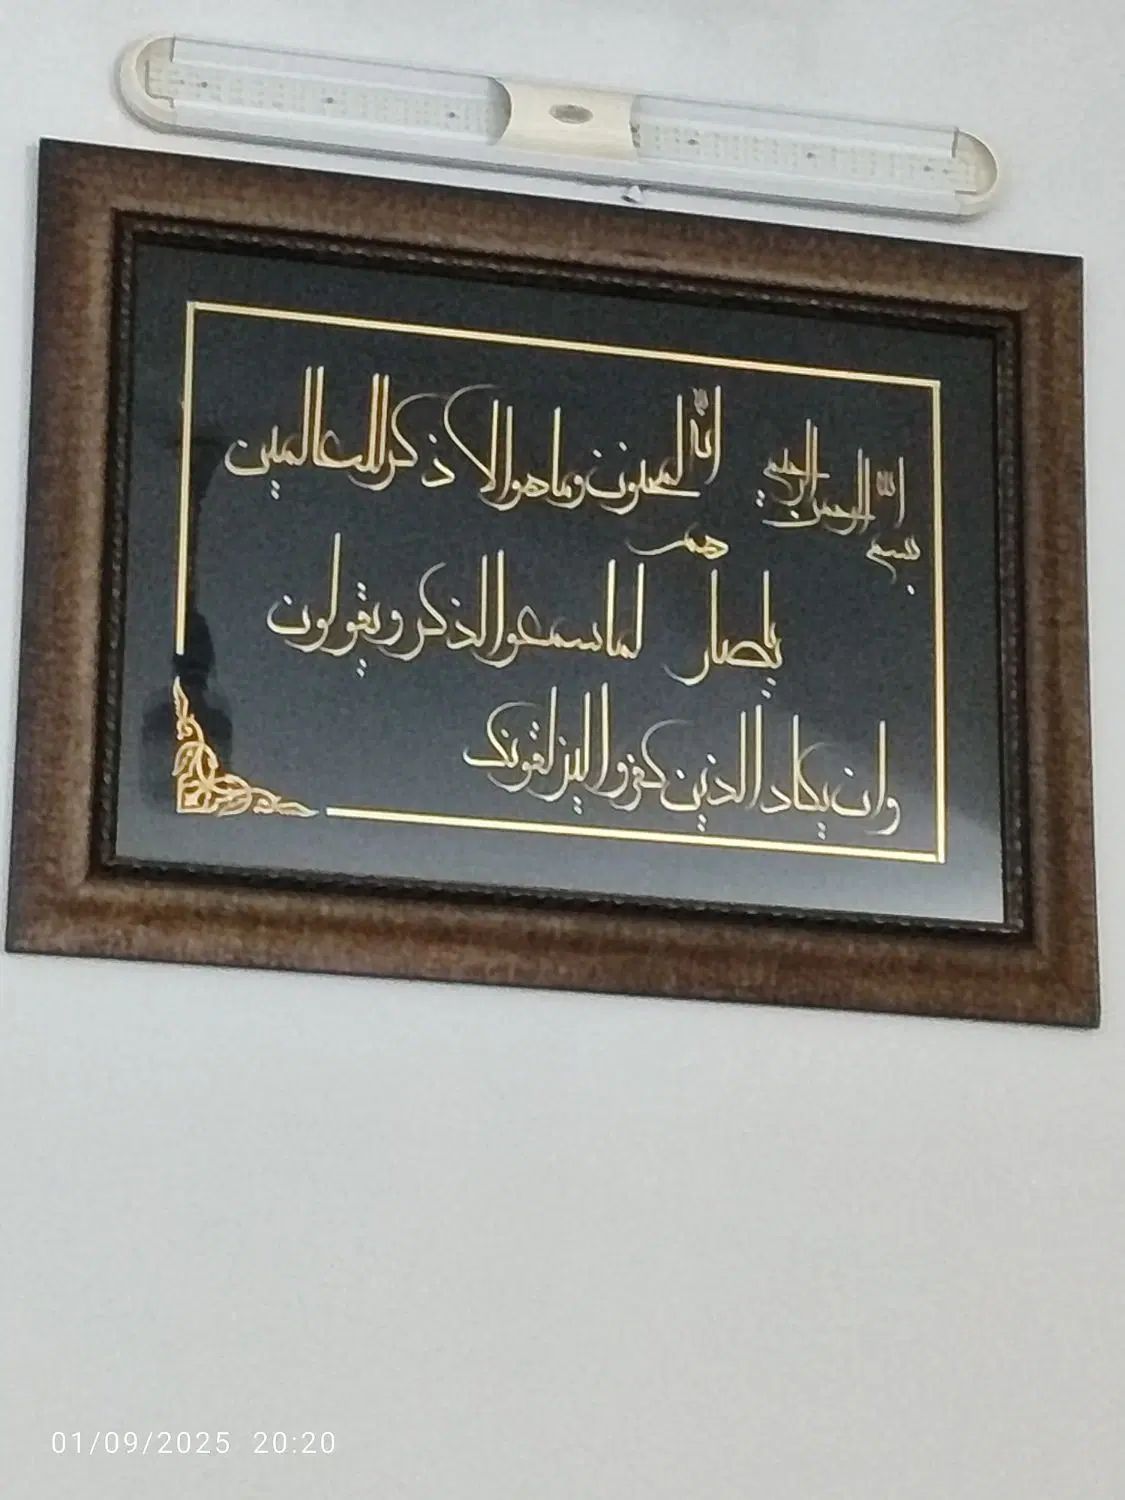 بسم الله الرحمن الرحيم
وان يكاد الذين كفروا ليزلقونك
بابصارهم لما سمعوا الذكر ويقولون
انه لمجنون وما هو الا ذكر للعالمين
01/09/2025 20:20